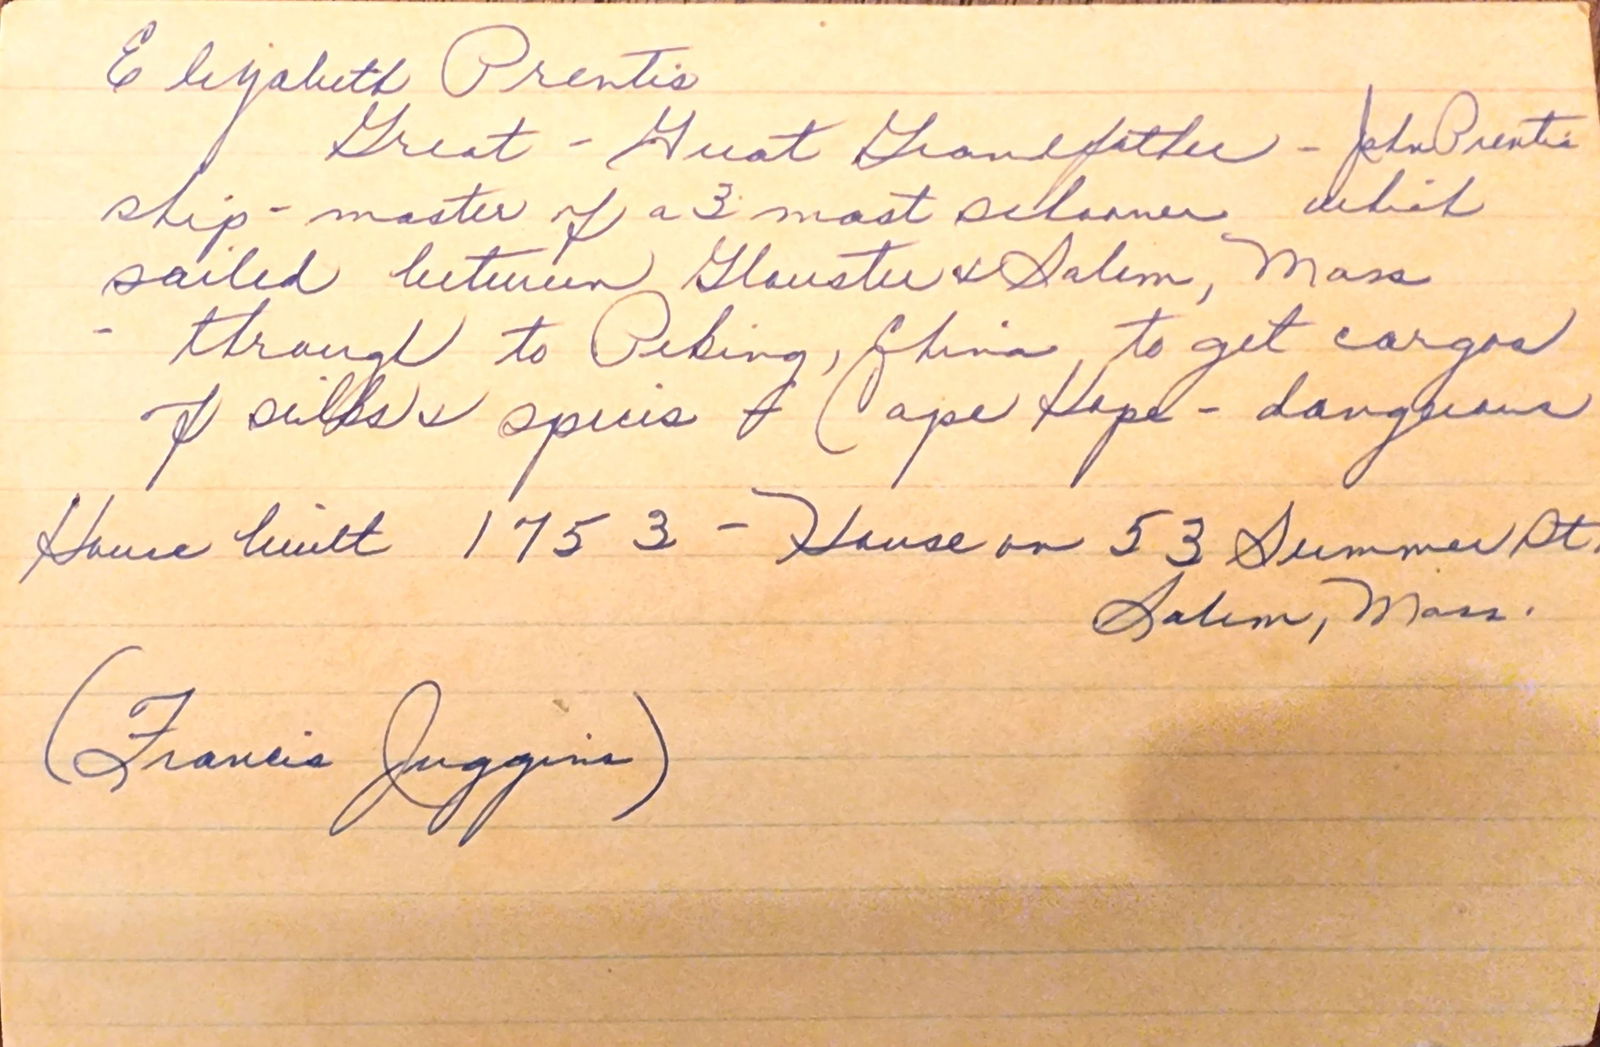 Elizabeth Prentis
Great - Great Grandfather - John Prentis
ship - master of a 3 mast schooner which
sailed between Glouster & Salem, Mass
- through to Peking, China, to get cargos
of silks & spices & Cape Hope - dangerous
House built 1753 - House on 53 Summer St.
Salem, Mass.
(Francis Juggins)